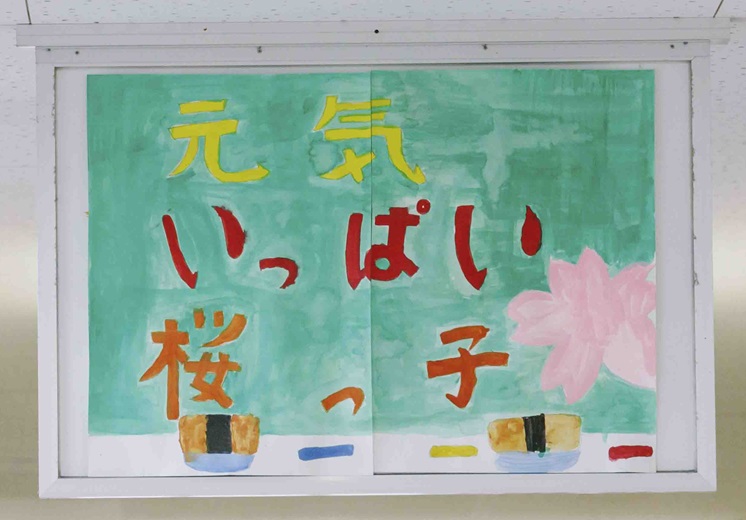 元気
いっぱい
桜っ子